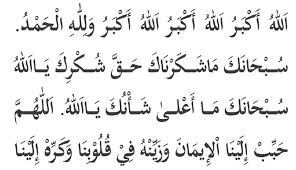 اَللهُ أَكْبَرُ اَللهُ أَكْبَرُ اَللهُ أَكْبَرُ وَلِلّٰهِ الْحَمْدُ.
سُبْحَانَكَ مَاشَكَرْنَاكَ حَقَّ شُكْرِكَ يَااَللهُ
سُبْحَانَكَ مَا أَعْلىٰ شَأْنُكَ يَااَللهُ. اَللّٰهُمَّ
حَبِّبْ إِلَيْنَا اْلإِيمَانَ وَزَيِّنْهُ فِيْ قُلُوْبِنَا وَكَرِّهْ إِلَيْنَا